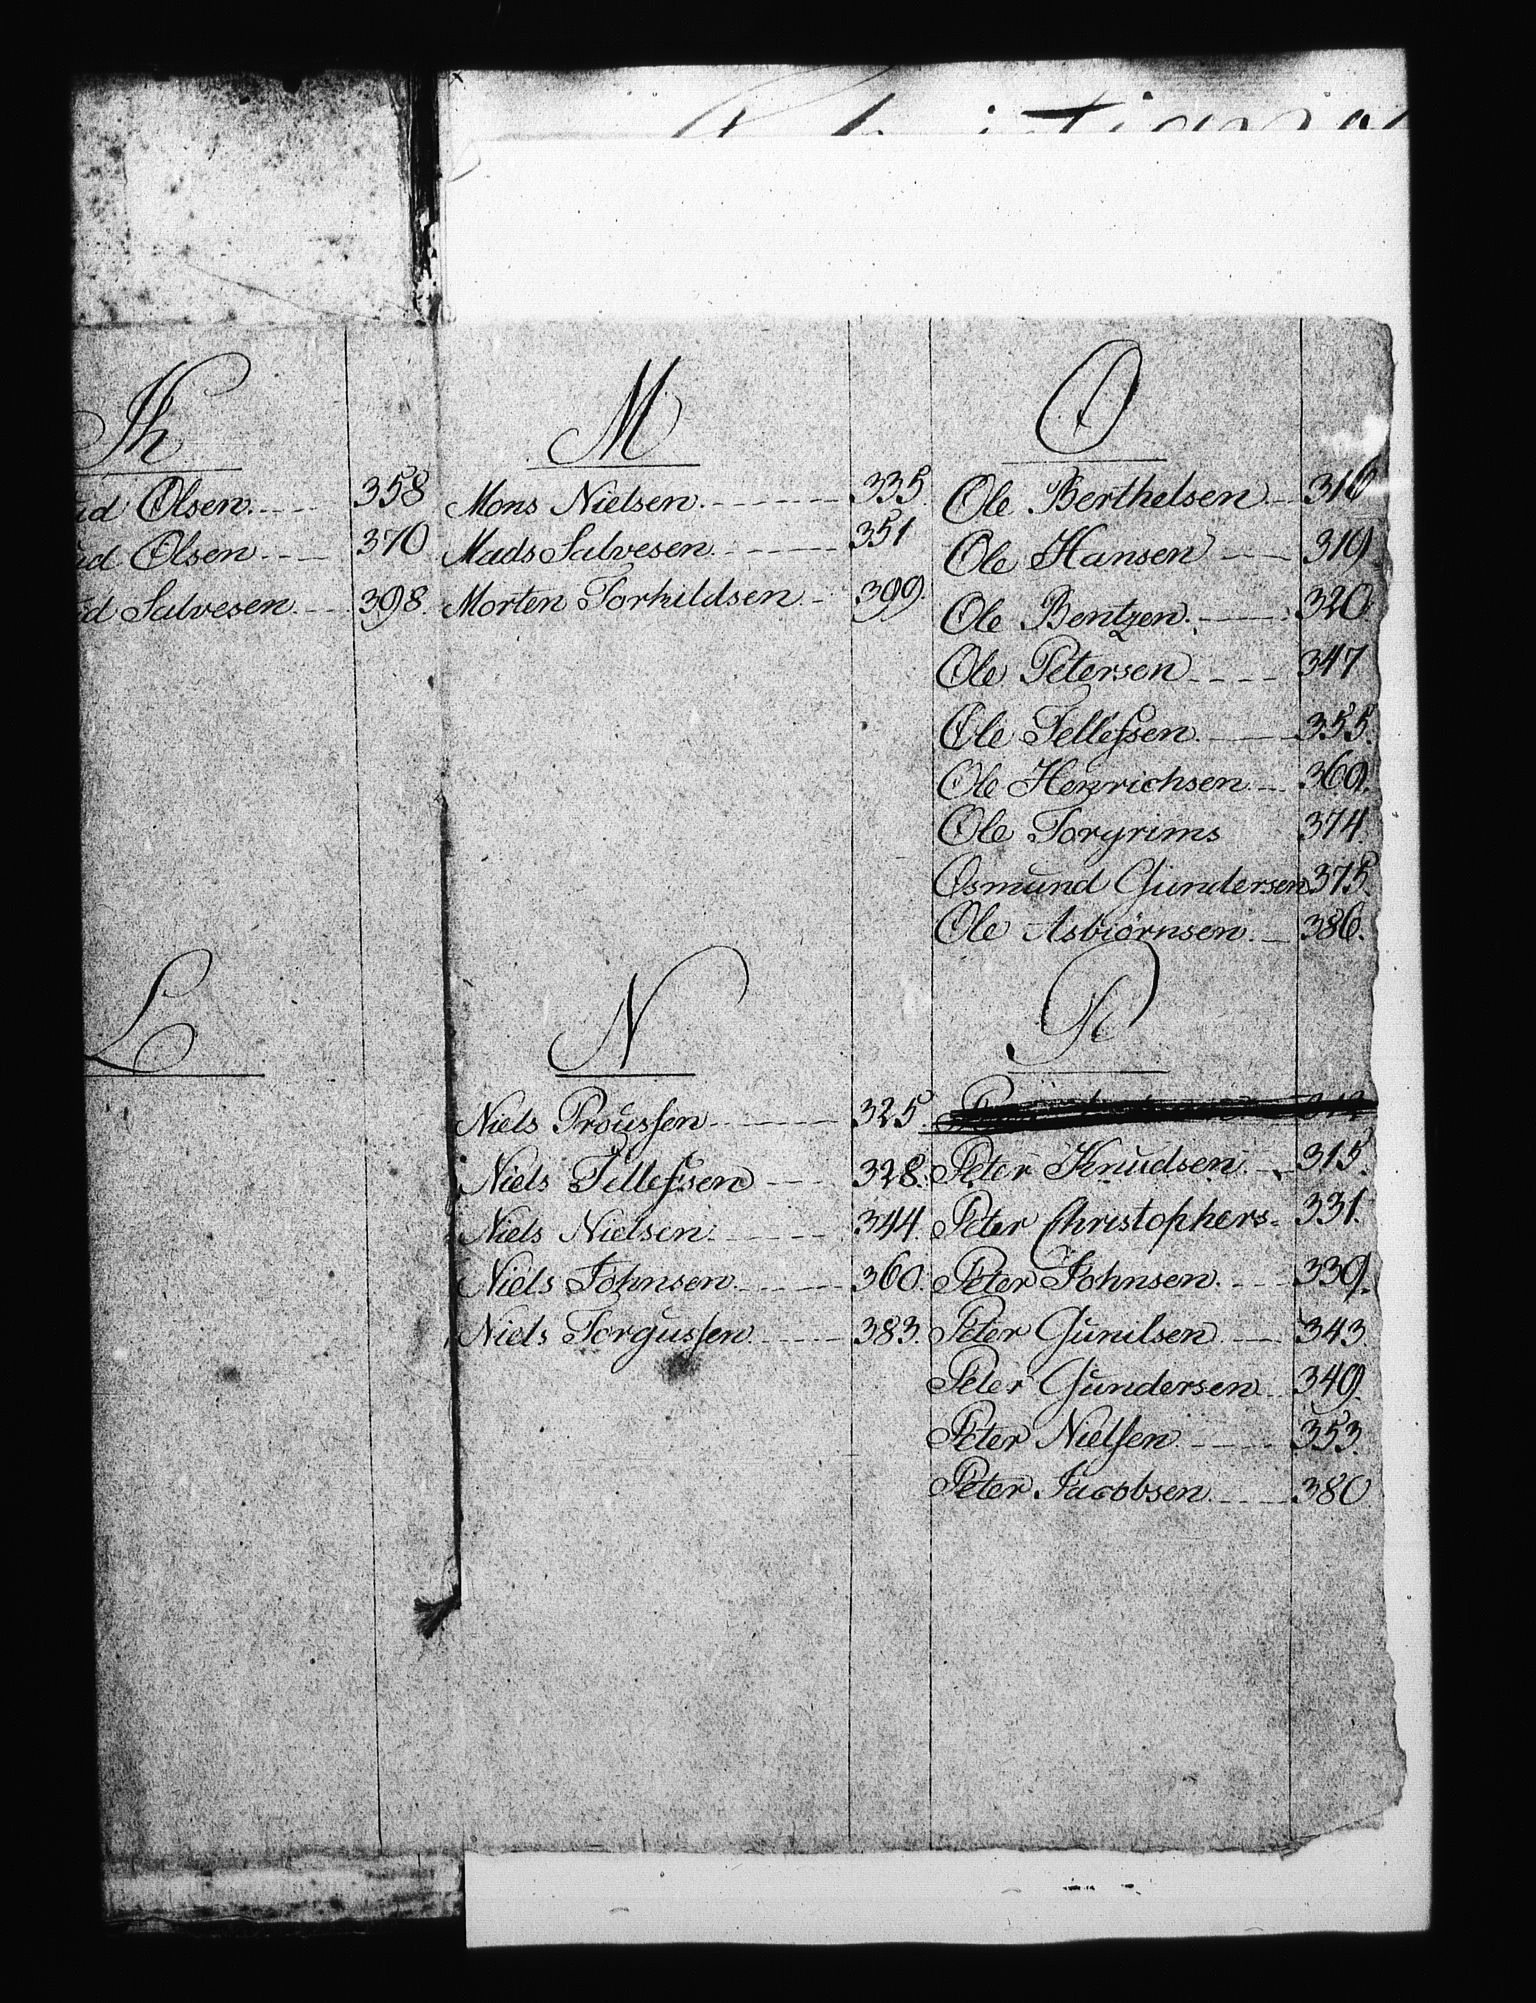 K
Olsen 358
Olsen 370
Salvesen 398.
L
M
Mons Nielsen 335.
Mads Salvesen 351
Morten Torkildsen 399.
N
Niels Proussen 325.
Niels Tellefsen 328.
Niels Nielsen 344.
Niels Johnsen 360.
Niels Torgussen 383.
O
Ole Berthelsen 316
Ole Hansen 319
Ole Bentzen 320.
Ole Petersen 347
Ole Tellefsen 355.
Ole Henrichsen 369.
Ole Torgrims 374.
Osmund Gundersen 375.
Ole Asbiörnsen 386.
P
Peter Knudsen 315.
Peter Christophers. 331.
Peter Johnsen 339.
Peter Gunilsen 343.
Peter Gundersen 349.
Peter Nielsen 353.
Peter Jacobsen 380